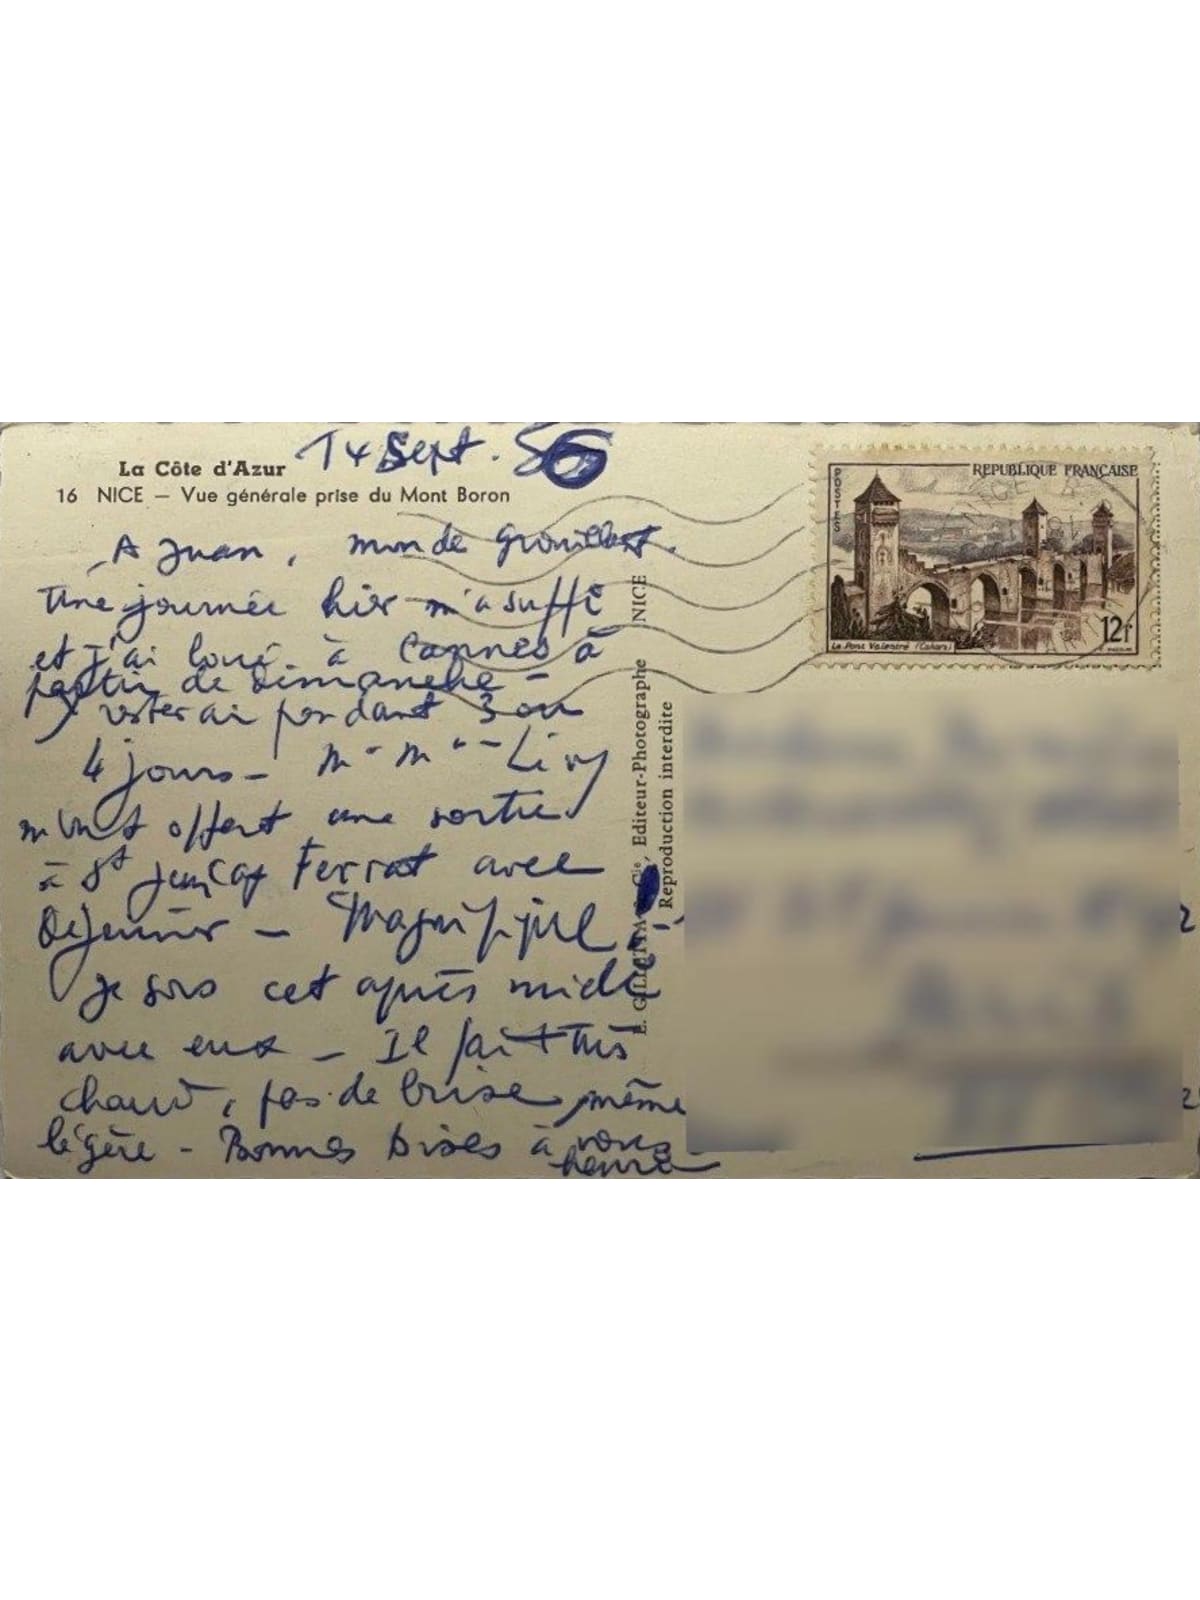 14 Sept. 56
La Côte d'Azur
16 NICE — Vue générale prise du Mont Boron
A Juan, monde grouillant.
Une journée hier m'a suffi
et j'ai loué à Cannes à
partir de Dimanche -
J'y resterai pendant 3 ou
4 jours - Mr Mme Livy
m'ont offert une sortie
à St Jean Cap Ferrat avec
Déjeuner - Magnifique -
je sors cet après midi
avec eux - Il fait très
chaud, pas de brise même
légère - Bonnes bises à vous
E. GILLETTA & Cie, Editeur-Photographe NICE
Reproduction interdite
POSTES
REPUBLIQUE FRANÇAISE
Le Pont Valentré (Cahors)
12f